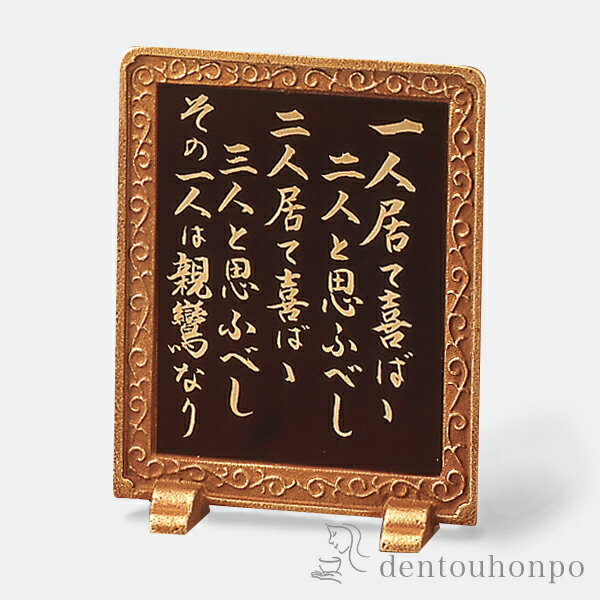 一人居て喜ばゝ
二人と思ふべし
二人居て喜ばゝ
三人と思ふべし
その一人は親鸞なり
dentouhonpo